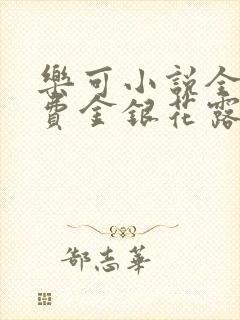 樂可小說全
費金銀花露
郜志華